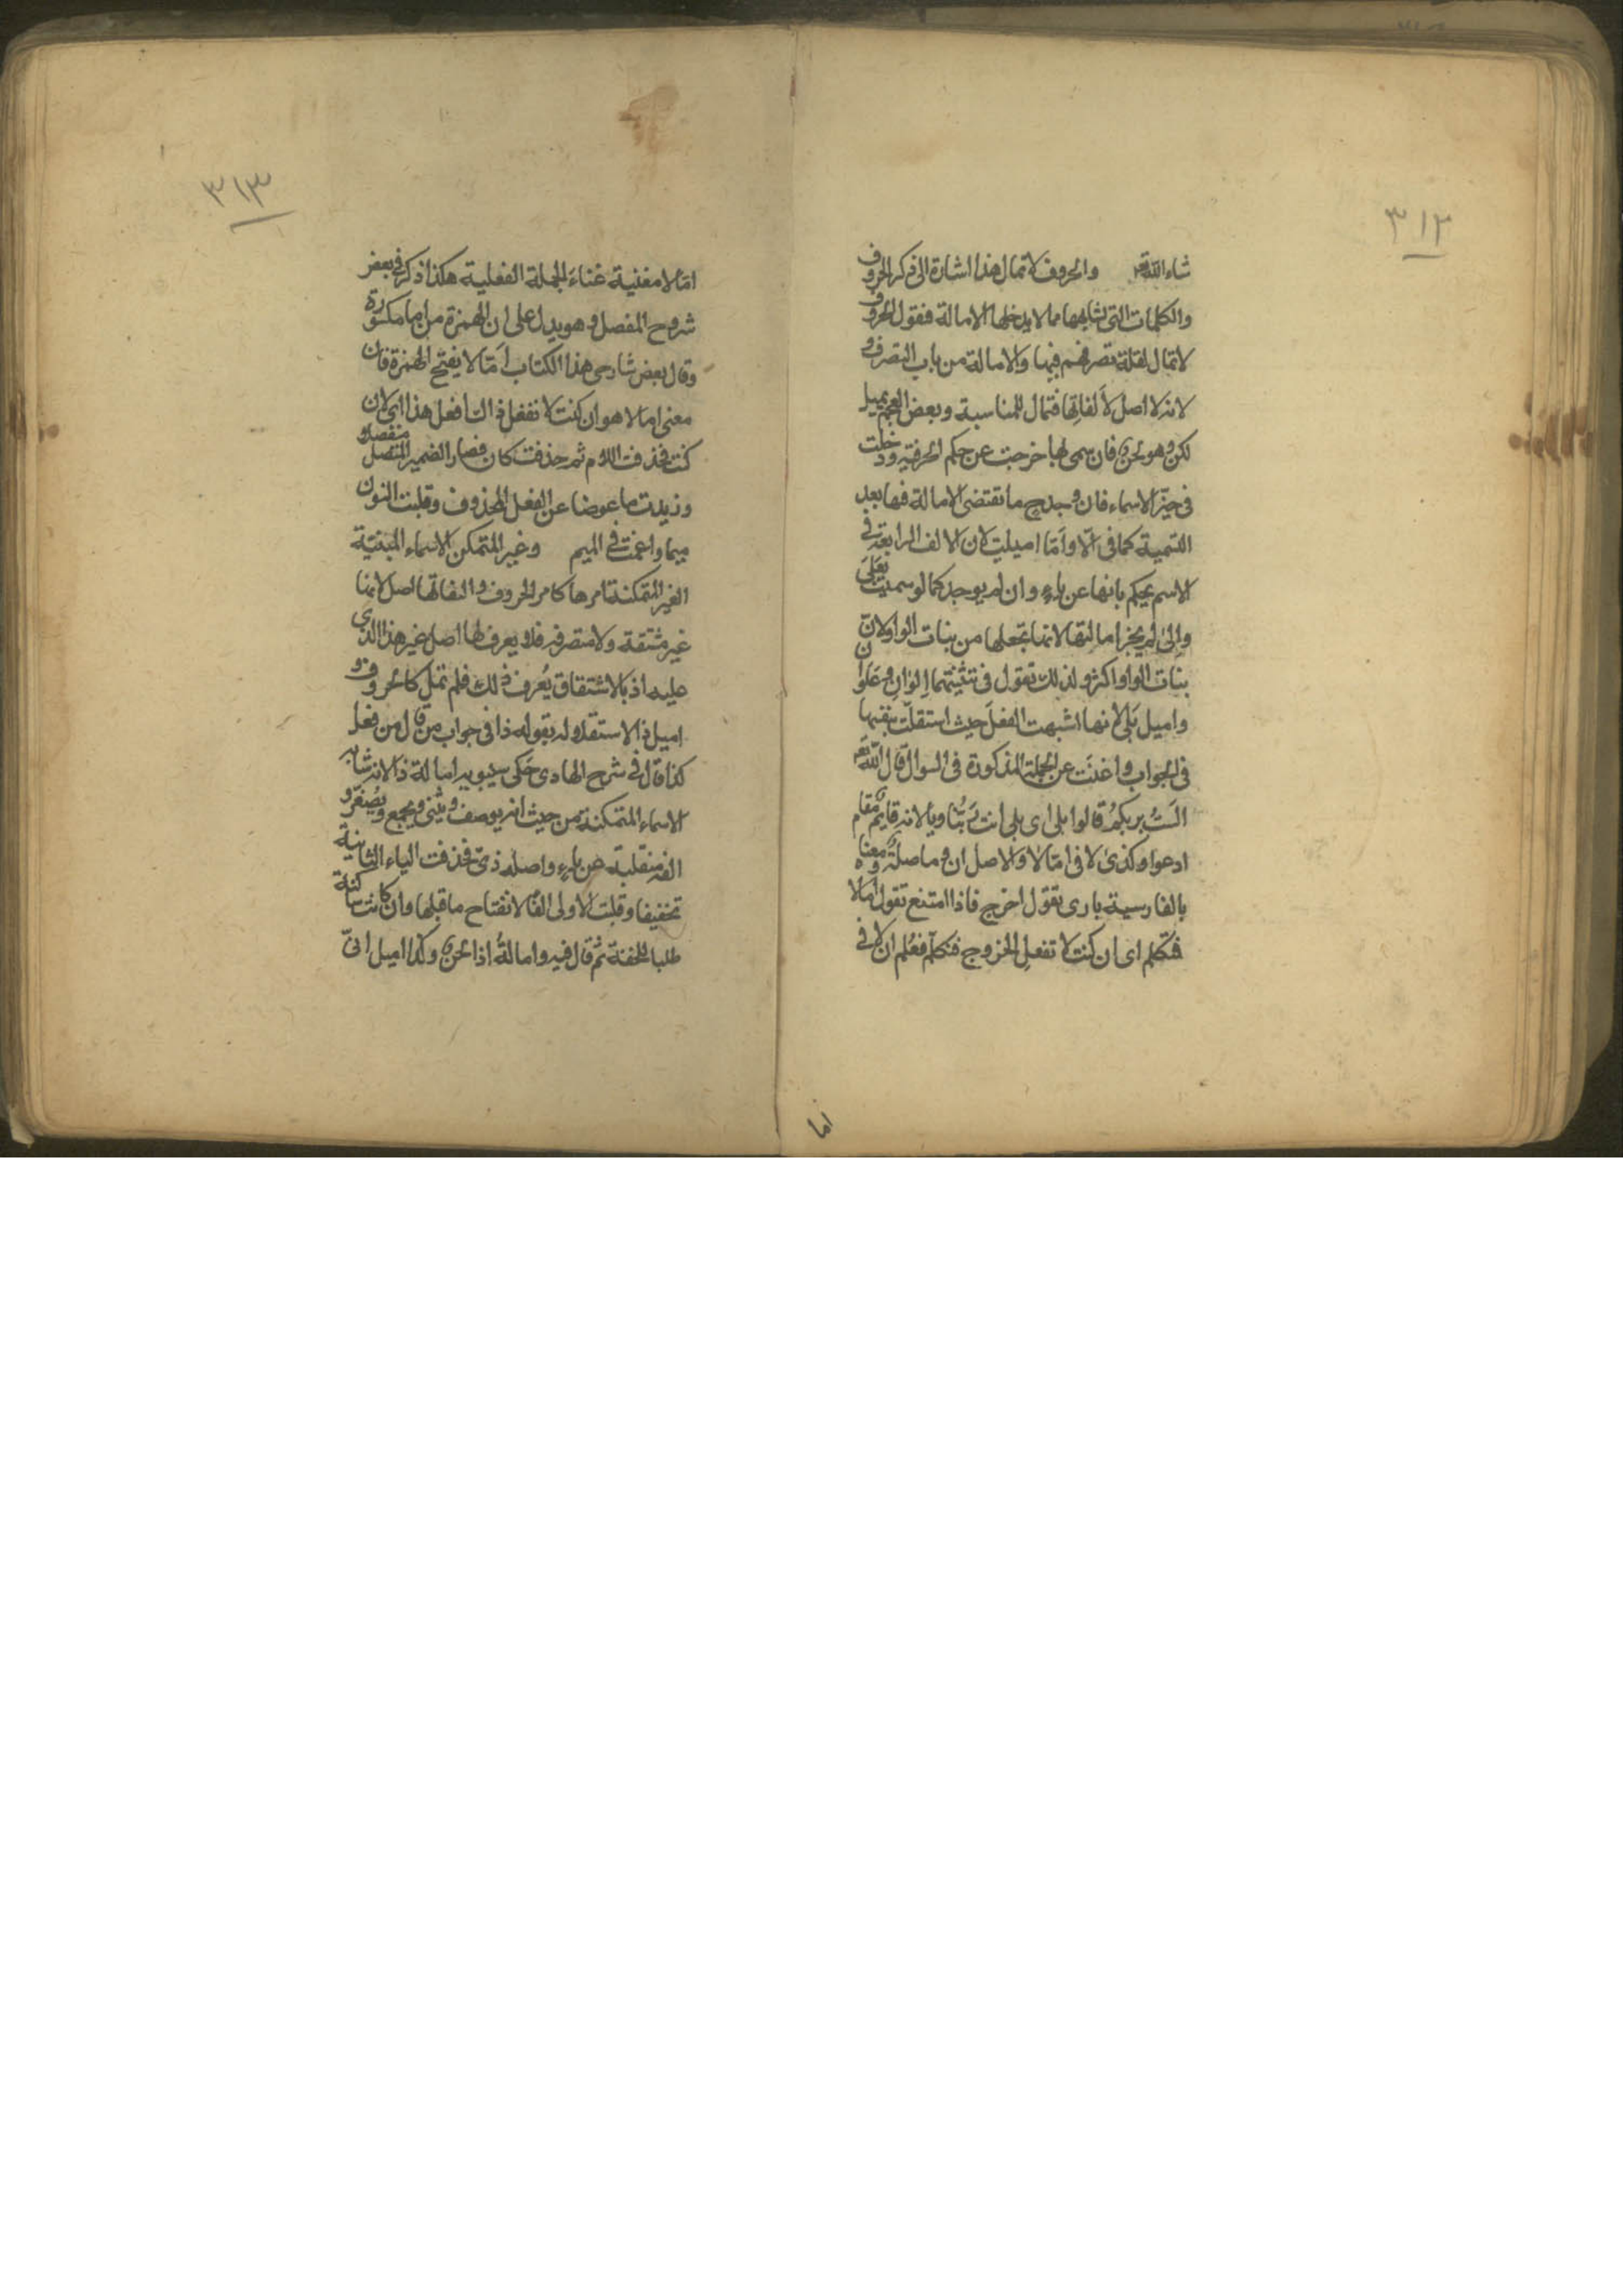 ٣١٢
شاء الله تعا والحروف لا تمال هذا اشارة الى ذكر الحروف
والكلمات التى تشابهها مما لا يدخلها الامالة فنقول الحروف
لا تمال لقلة تصرفهم فيها والامالة من باب التصرف و
لانه لا اصل لألفاتها فتمال للمناسبة وبعض العجم يميل
لكن وهو لحن فان سمى بها خرجت عن حكم الحرفية ودخلت
فى حيّز الاسماء فان وجد ح ما تقتضى الامالة فيها بعد
التسمية كما فى ألا وأمّا اميلت لان الالف الرابعة فى
الاسم يحكم بانها عن ياء وان لم يوجد كما لو سميت بعَلَى
والى لم يجز امالتها لانها تجعلها من بنات الواو لان
بنات الواو اكثر ولذلك تقول فى تثنيتهما اِلوان وعَلوان
واميل بَلى لانها اشبهت الفعل حيث استقلّت بنفسها
فى الجواب واغنت عن الجملة المذكورة فى السوال قال الله تعا
الَستُ بربكم قالوا بلى اى بلى انت ربّنا ويا لانه قايم مقام
ادعوا وكذى لا فى امّالا والاصل ان وما صلة ومعناه
بالفارسية بارى تقول اخرج فاذا امتنع تقول امّالا
فتكلم اى ان كنت لا تفعل الخروج فتكلم فعُلم ان لا فى
اما
٣١٣
امّالا مغنية غناءَ الجملة الفعلية هكذا ذكر فى بعض
شروح المفصل وهو يدل على ان الهمزة من اما مكسورة
وقال بعض شارحى هذا الكتاب اَمّا لا يفتح الهمزة فان
معنى اما لا هو ان كنت لا تفعل ذاك افعل هذا اى لان
كنت فحذفت اللام ثم حذفت كان فصار الضمير المتصل منفصلا
وزيدت ما عوضا عن الفعل المحذوف وقلبت النون
ميما وادغمت فى الميم وغير المتمكن الاسماء المبنيّة
الغير المتمكنة امرها كامر الحروف والفاتها اصل لانها
غير مشتقة ولا متصرفه فلا يعرف لها اصل غير هذا الذى
عليه اذ بالاشتقاق يُعرف ذلك فلم تمل كالحروف و
اميل ذا لاستقلاله بقوله ذا فى جواب من قال من فعل
كذا قال فى شرح الهادى حَكى سيبويه امالة ذا لانه شابه
الاسماء المتمكنة من حيث انه يوصف ويثنى ويجمع ويُصغّر و
الفه منقلبة عن ياء واصله ذىّ فحذفت الياء الثانية
تخفيفا وقلبت الاولى الفًا لانفتاح ما قبلها وان كانت ساكنة
طلبا للخفة ثم قال فيه وامالةُ اذا لحن وكذا اميل انىّ